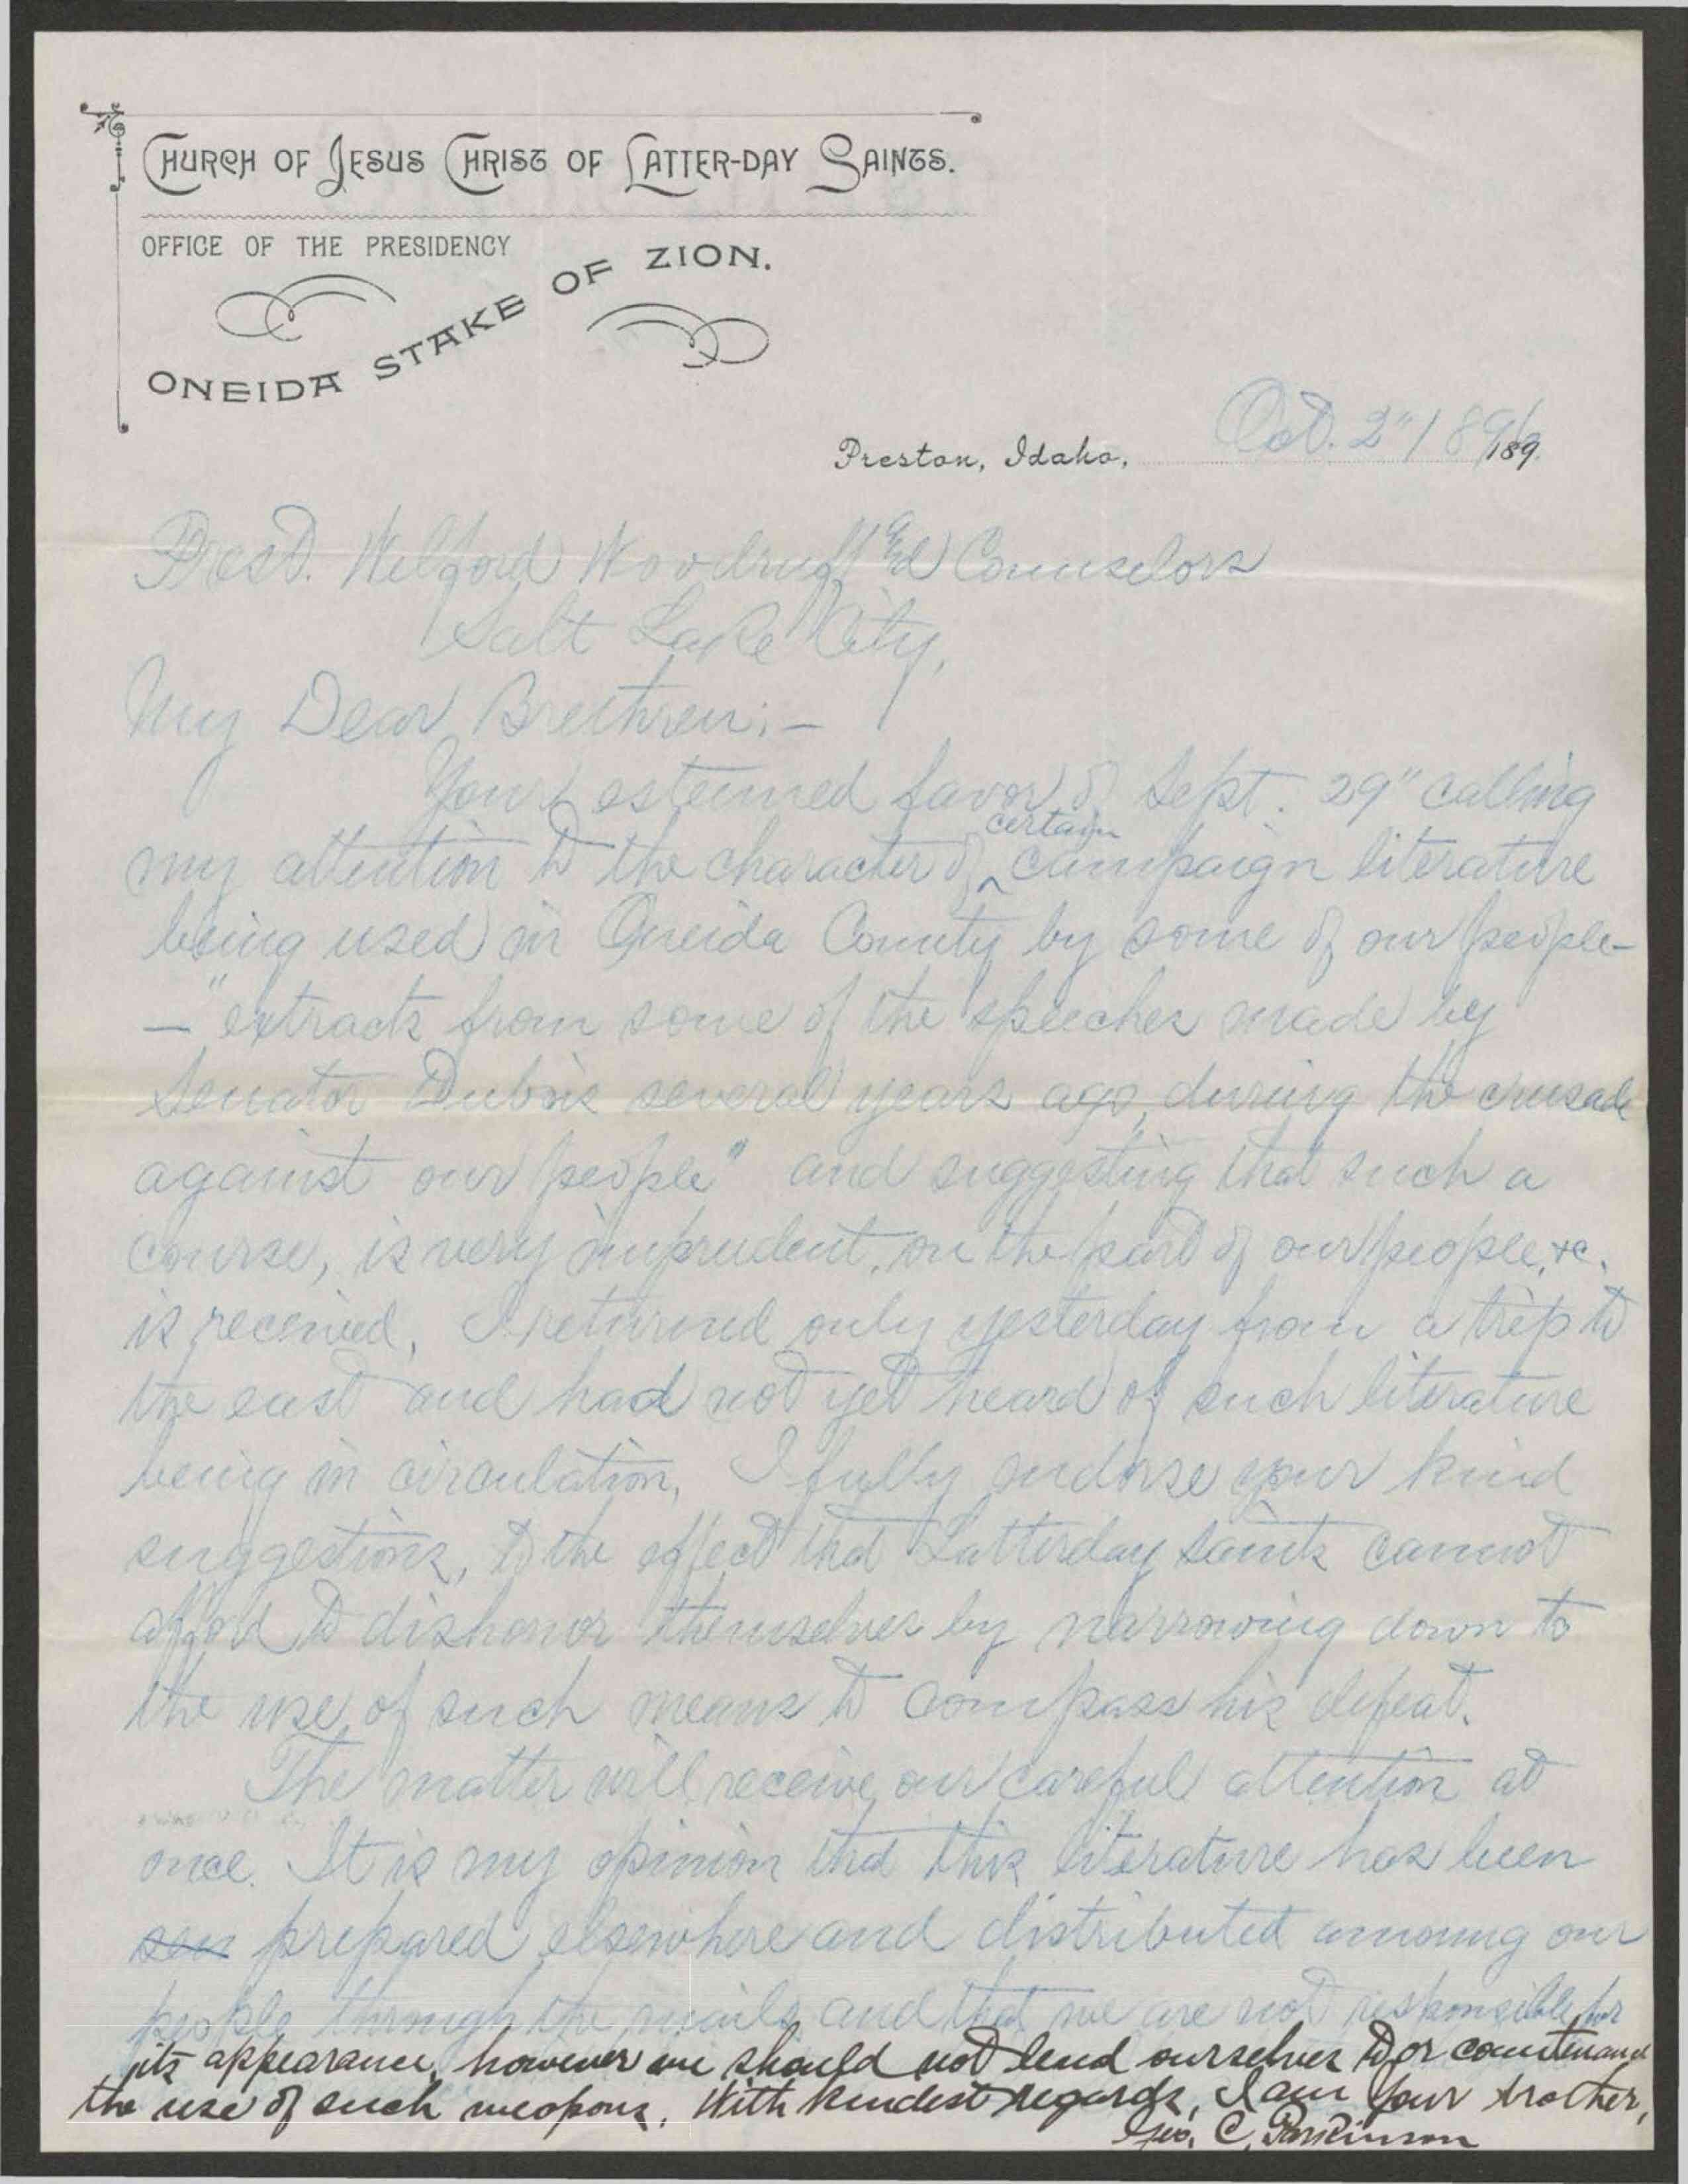 CHURCH OF JESUS CHRIST OF LATTER-DAY SAINTS.
OFFICE OF THE PRESIDENCY
ONEIDA STAKE OF ZION.
Preston, Idaho, Oct. 2" 1896 189
Prest. Wilford Woodruff and Counselors
Salt Lake City,
My Dear Brethren;-
Your esteemed favor of Sept. 29" calling
my attention to the character of ^certain campaign literature
being used in Oneida County by some of our people-
- "extracts from some of the speeches made by
Senator Dubois several years ago, during the crusade
against our people" and suggesting that such a
course, is very imprudent, on the part of our people, &c.
is received. I returned only yesterday from a trip to
the east and had not yet heard of such literature
being in circulation, I fully endorse your kind
suggestions, to the effect that Latterday Saints cannot
afford to dishonor themselves by narrowing down to
the use of such means to compass his defeat.
The matter will receive our careful attention at
once. It is my opinion that this literature has been
sen prepared elsewhere and distributed among our
people through the mails and that we are not responsible for
its appearance, however we should not lend ourselves to or countenance
the use of such weapons. With kindest regards, I am Your brother,
Geo. C. Parkinson